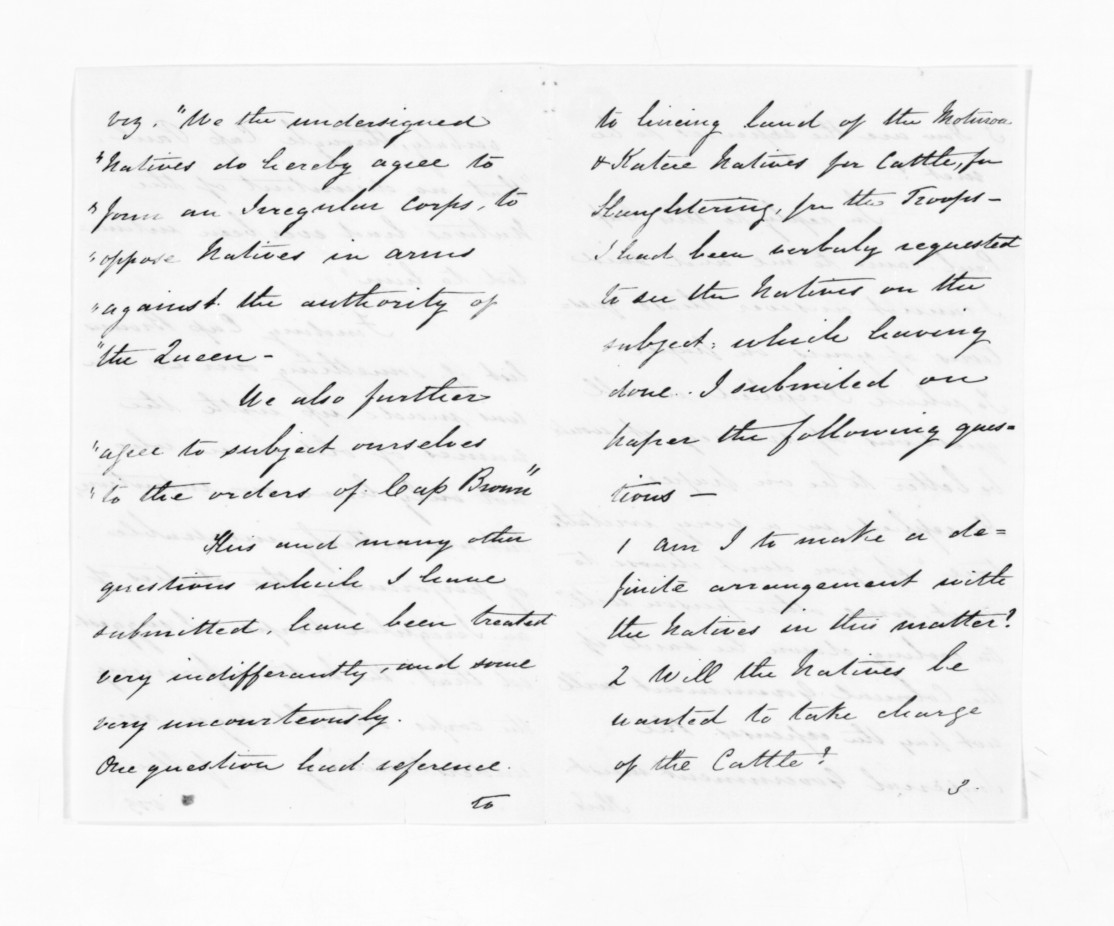 viz. "We the undersigned
"Natives do hereby agree to
"form an Irregular Corps, to
"oppose Natives in arms
"against the authority of
"the Queen -
We also further
"agree to subject ourselves
"to the orders of Cap Brown"
This and many other
questions which I have
submitted, have been treated
very indifferantly, and some
very uncourteously.
One question had reference
to
to hireing land of the
& Natives for Cattle, for
Slaughtering, for the Troops -
I had been verbaly requested
to see the Natives on the
subject; which having
done. I submited on
paper the following ques=
tions -
1 am I to make a de=
finite arrangement with
the Natives in this matter?
2 Will the Natives be
wanted to take charge
of the Cattle?
3.